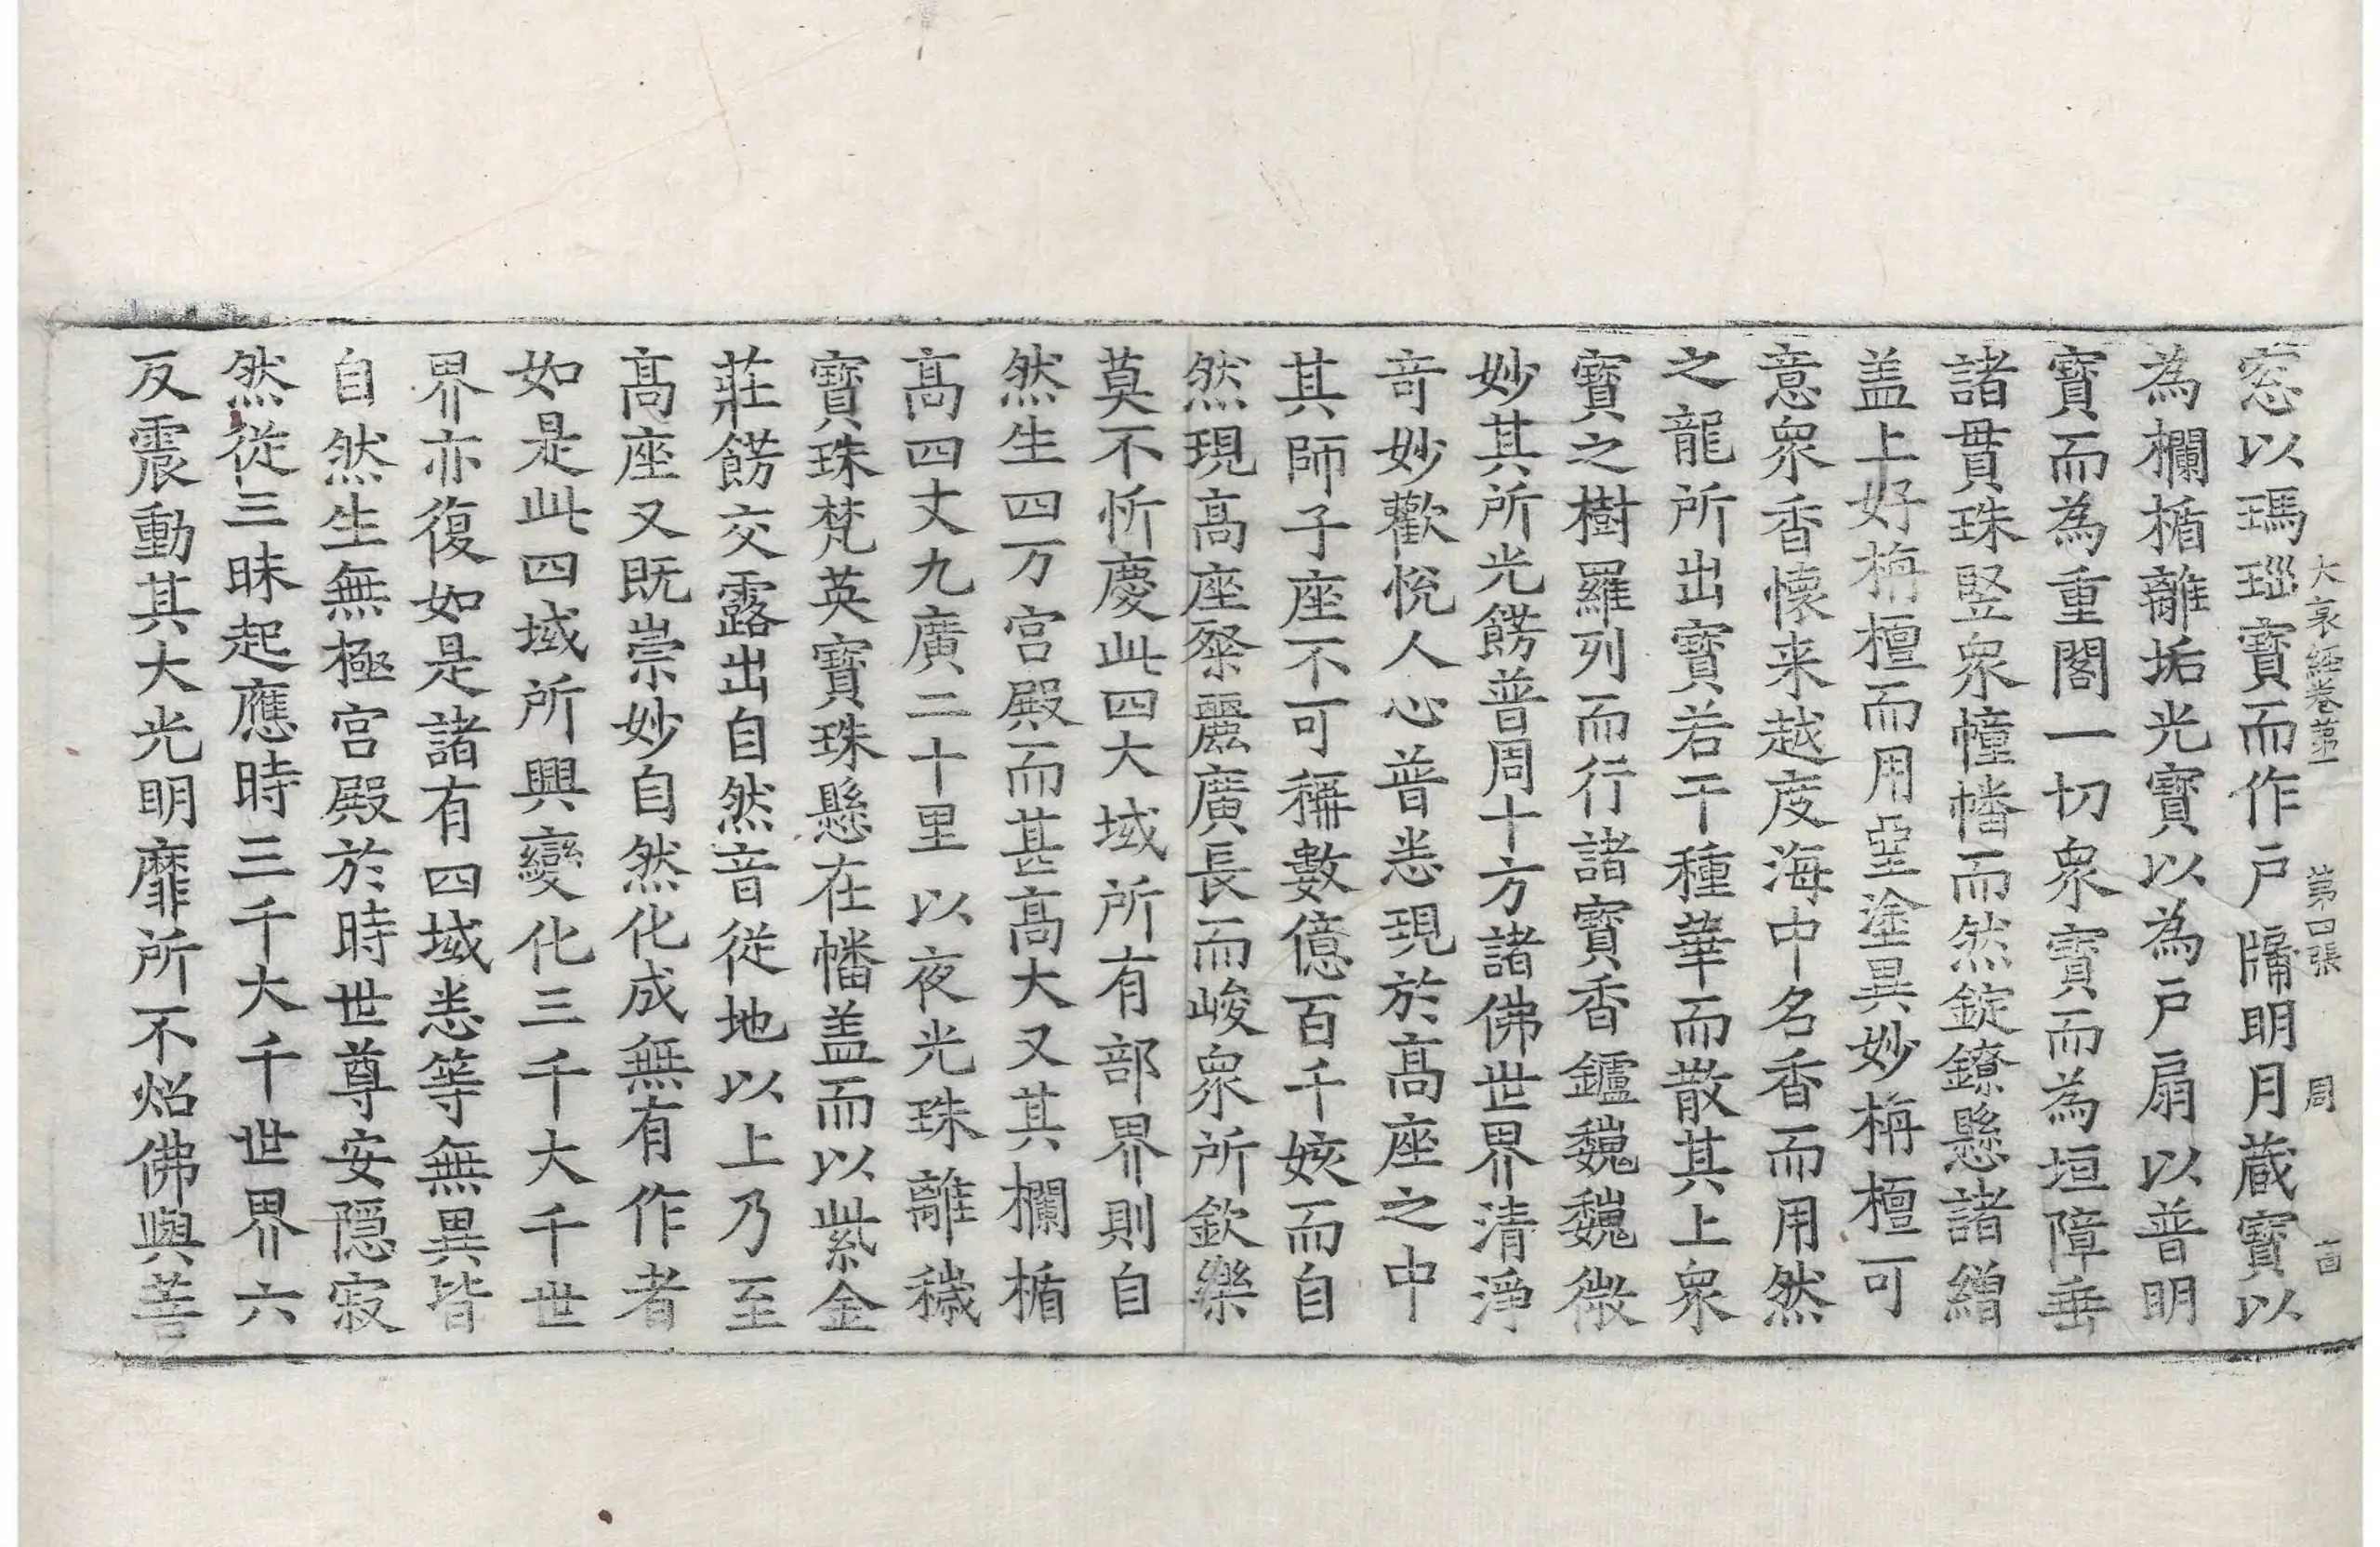 大哀經卷第一 第四張 周
窓以瑪瑙寶而作戶牖明月蔵寶以
為欄楯離垢光寶以為戶扇以普明
寶而為重閣一切衆寶而為垣障垂
諸貫珠竪衆幢幡而然錠鐐懸諸繒
盖上好栴檀而用堊塗異妙栴檀可
意衆香懷来越度海中名香而用然
之龍所出寶若干種華而散其上衆
寶之樹羅列而行諸寶香鑪巍巍微
妙其所光餝普周十方諸佛世界清淨
竒妙歡悅人心普悉現於髙座之中
其師子座不可稱數億百千姟而自
然現髙座粲麗廣長而峻衆所欽樂
莫不忻慶此四大域所有部界則自
然生四万宮殿而甚髙大又其欄楯
髙四丈九廣二十里以夜光珠離穢
寶珠梵英寶珠懸在幡盖而以紫金
莊餝交露出自然音從地以上乃至
髙座又既崇妙自然化成無有作者
如是此四域所興變化三千大千世
界亦復如是諸有四域悉等無異皆
自然生無極宮殿於時世尊安隱寂
然從三昧起應時三千大千世界六
反震動其大光明靡所不炤佛與善